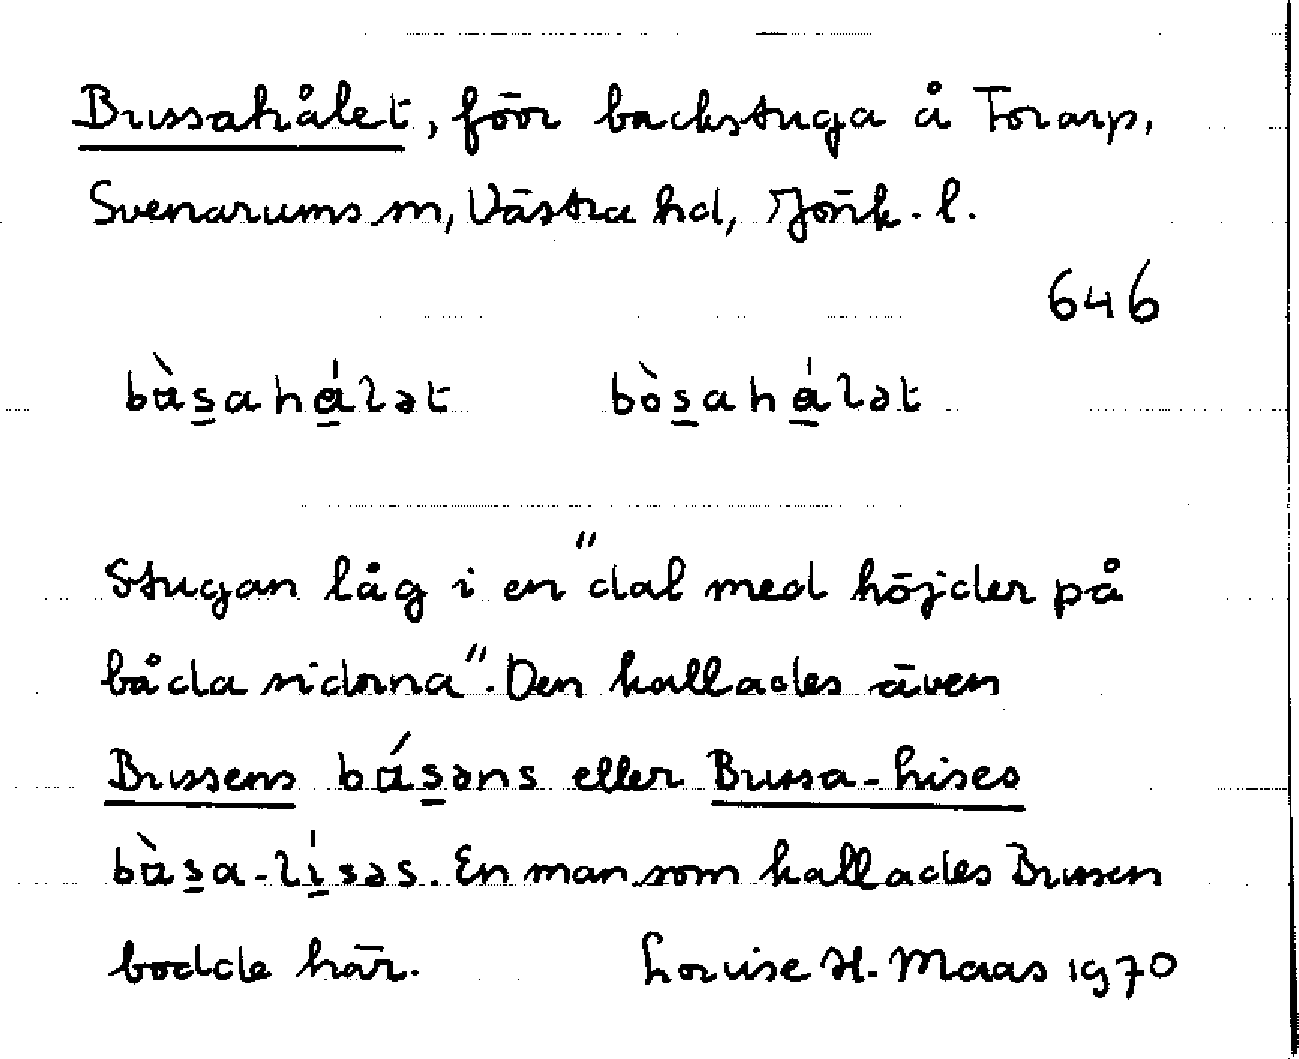 Bussahålet, förr backstuga å Torarp,
Svenarums sn, Västra hd, Jönk. l.
646
bùs̱ahá̱lət bòs̱ahá̱lət
Stugan låg i en "dal med höjder på
båda sidorna". Den kallades även
Bussens bús̱əns eller Bussa-Lises
bùs̱a-lí̱səs. En man som kallades Bussen
bodde här. Louise H. Maas 1970